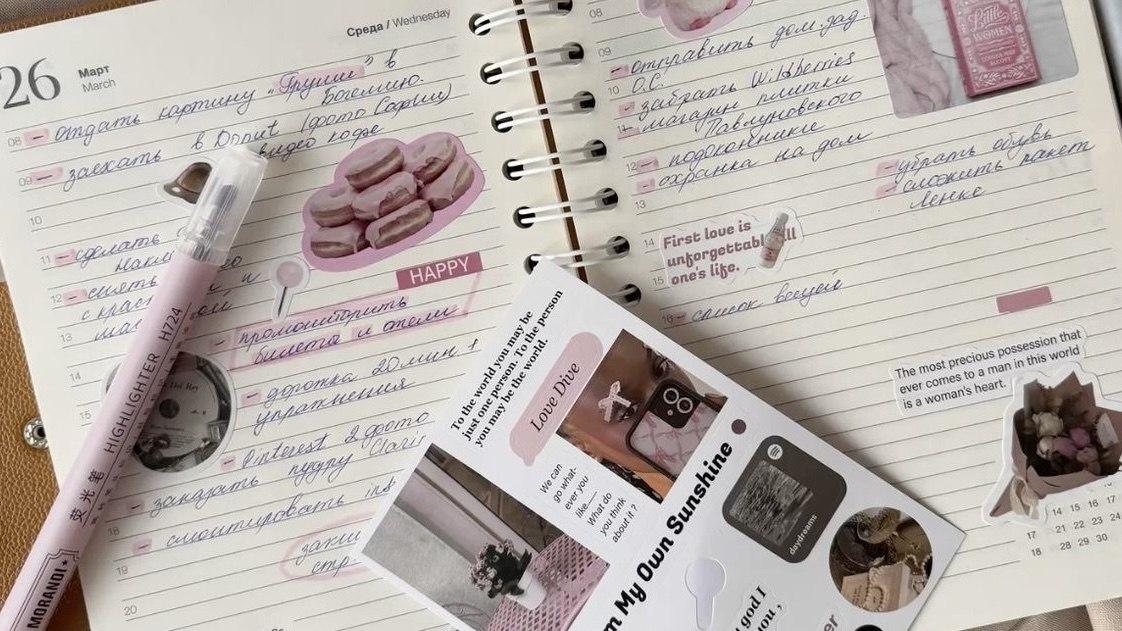 26
Март
March
Среда / Wednesday
08 – отдать картину „Груши" в
Богемию.
09 – заехать в Donut (фото Софии)
видео кофе
10
11 – сделать
12 – снять и
13
HAPPY
– промониторить
билеты и отели
14
– дорожка 20 мин. +
упражнения
15
– Pinterest 2 фото
пудру
– заказать
18
– смонтировать
19
20
HIGHLIGHTER H724
荧光笔
MORANDI
08
09
– отправить дом. зад.
10 О.С.
– забрать Wildberries
11 – магазин плитки
Павлуновского
12 – подоконники
– охранка на дом
13
– убрать обувь
– сложить пакет
Ленке
14
15
First love is
unforgettable all
one's life.
16 – список вещей
Little
WOMEN
The most precious possession that
ever comes to a man in this world
is a woman's heart.
14 15 16 17
17 21 22 23 24
18 28 29 30
To the world you may be
just one person. To the person
you may be the world.
Love Dive
We can
go what-
ever you
like—
What do
you think
about it ?
My Own Sunshine
daydreams
god I
you ,